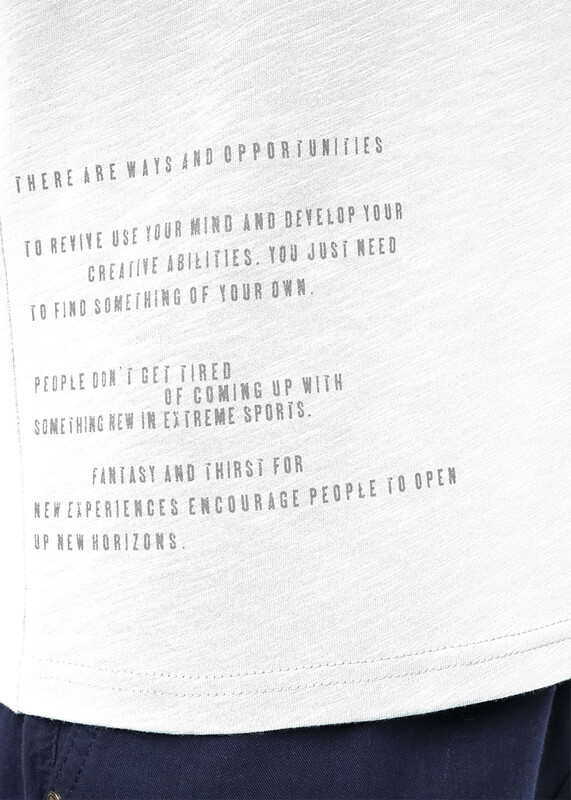 THERE ARE WAYS AND OPPORTUNITIES
TO REVIVE USE YOUR MIND AND DEVELOP YOUR
CREATIVE ABILITIES. YOU JUST NEED
TO FIND SOMETHING OF YOUR OWN.
PEOPLE DON'T GET TIRED
OF COMING UP WITH
SOMETHING NEW IN EXTREME SPORTS.
FANTASY AND THIRST FOR
NEW EXPERIENCES ENCOURAGE PEOPLE TO OPEN
UP NEW HORIZONS.